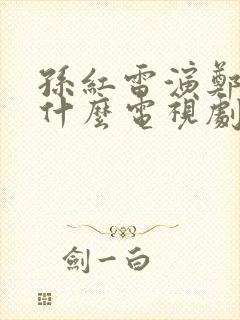 孫紅雷演鄭
什麼電視劇
劍一白